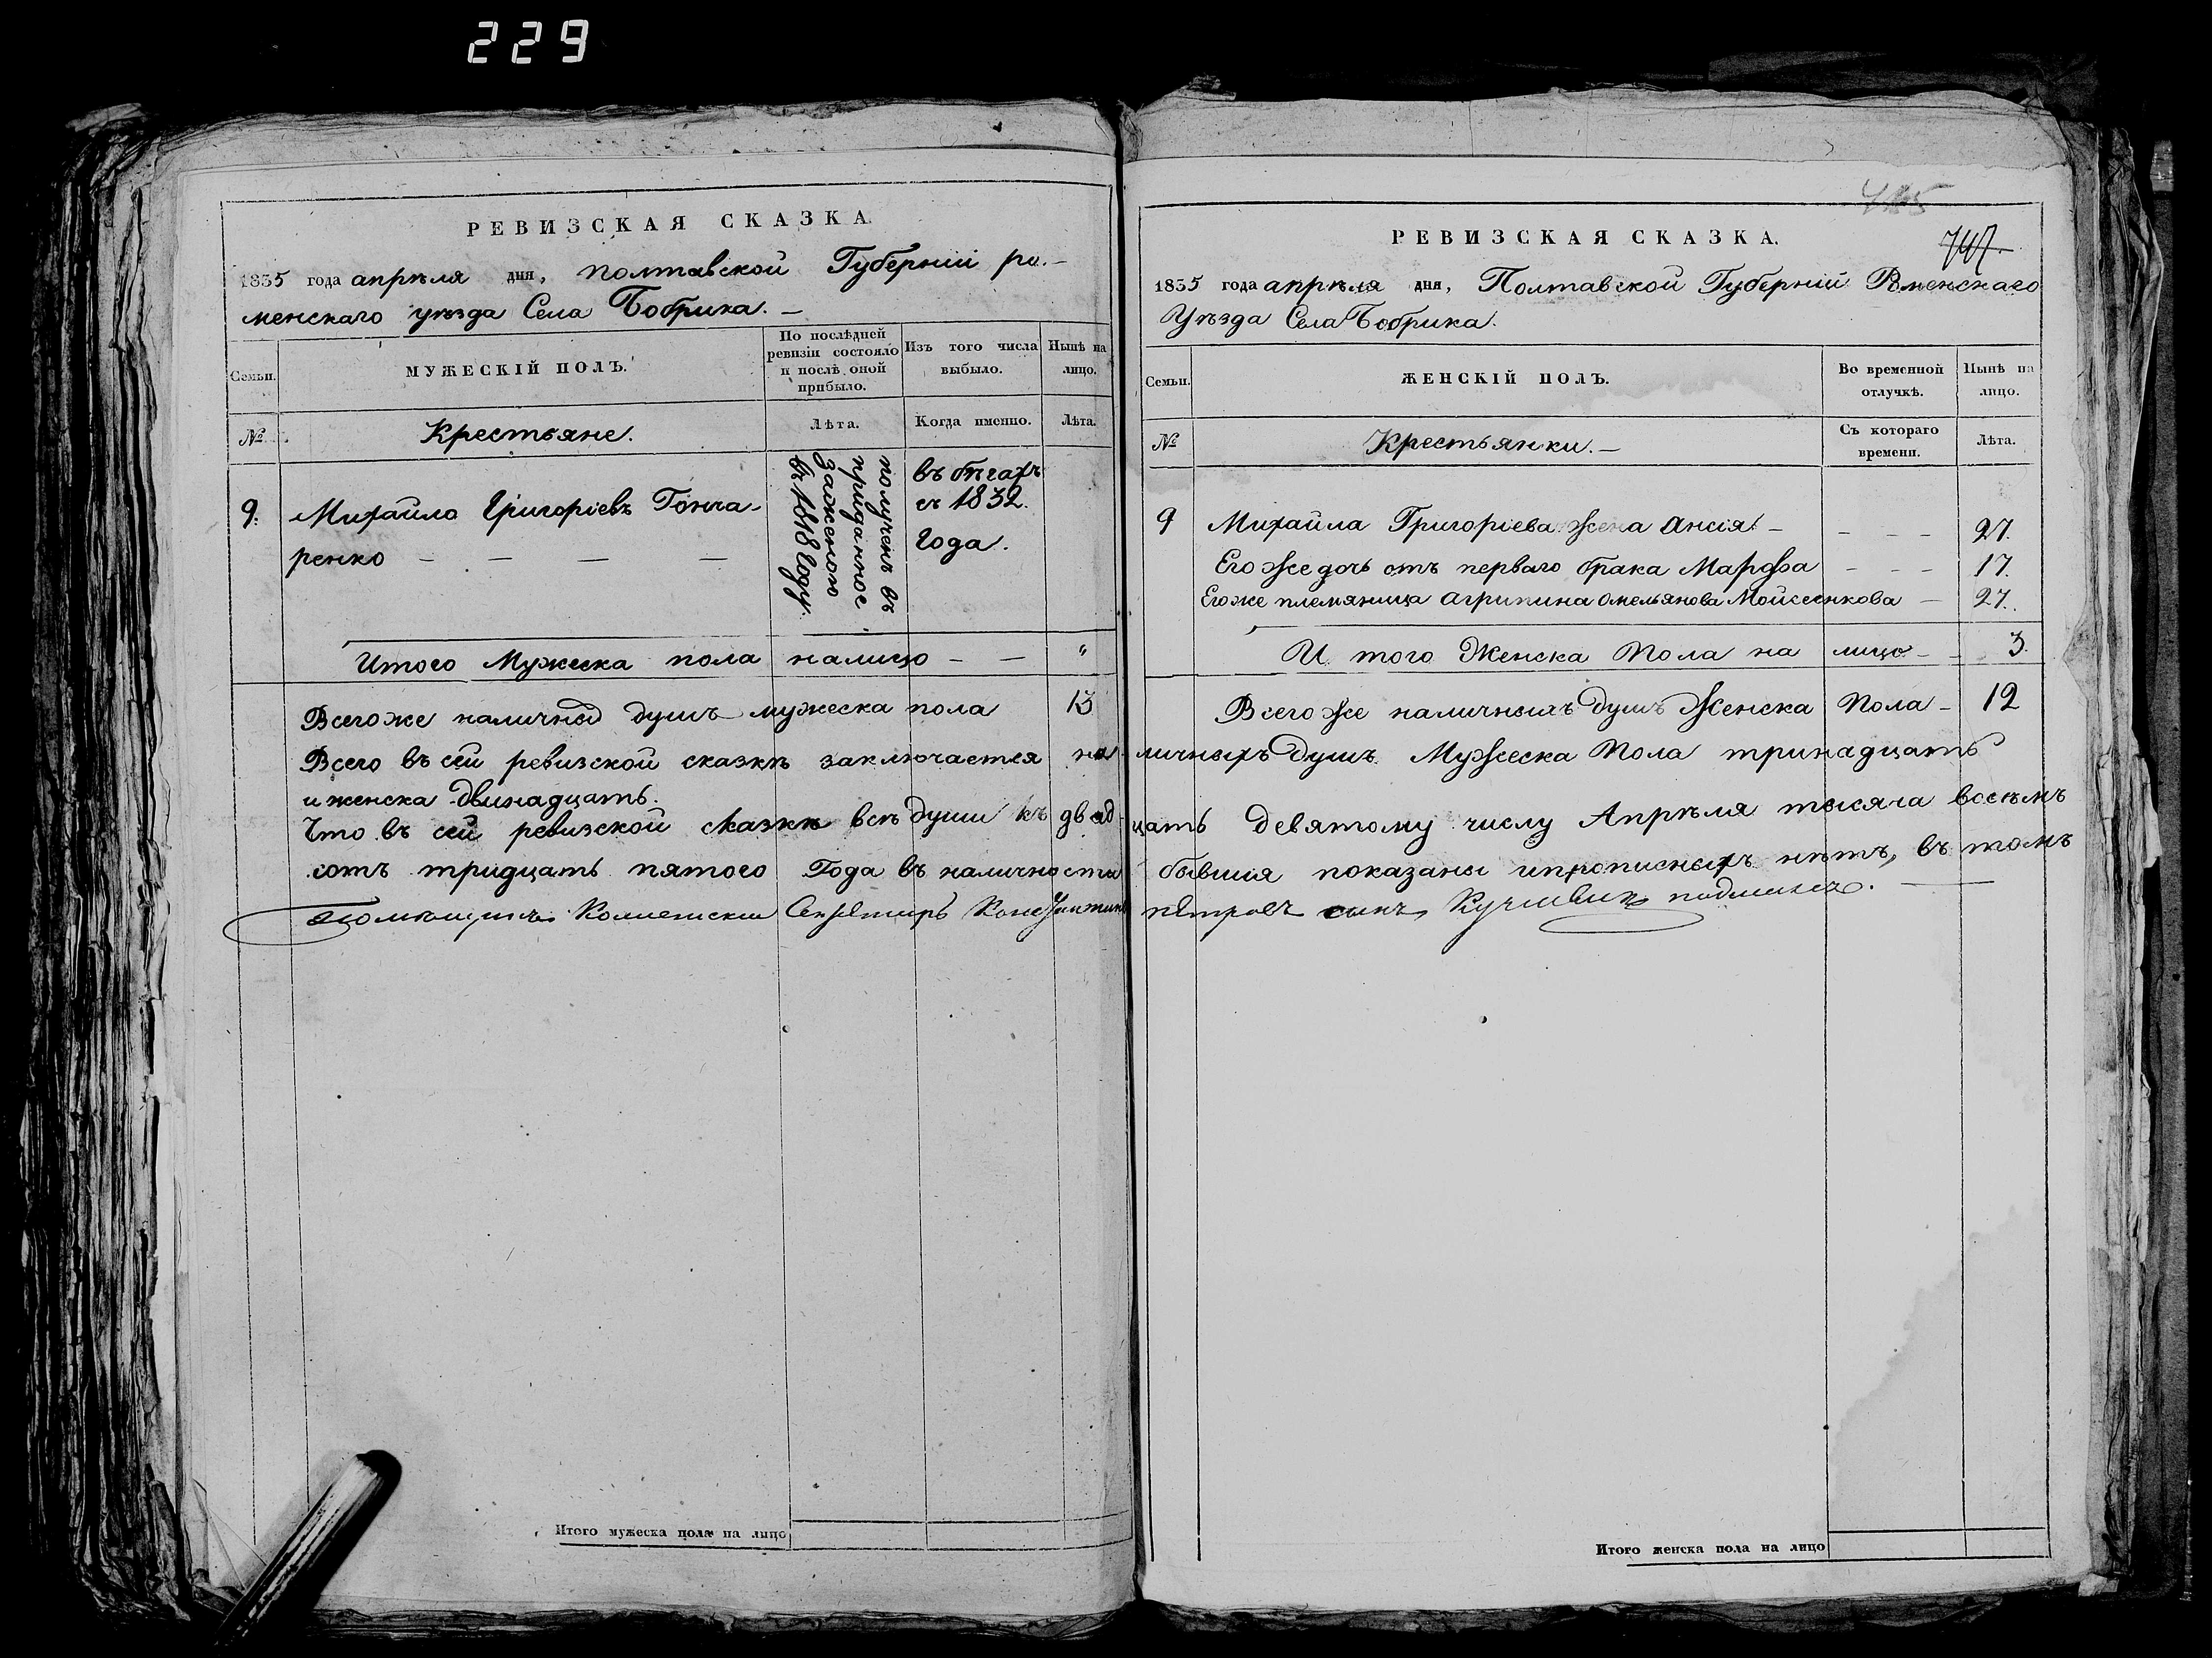 229
РЕВИЗСКАЯ СКАЗКА.
1835 года апрѣля дня, Полтавской Губерніи ро-
менскаго уѣзда Села Бобрика. —
Семьи.
МУЖЕСКІЙ ПОЛЪ.
По послѣдней ревизіи состояло и послѣ оной прибыло.
Изъ того числа выбыло.
Нынѣ на лицо.
№
Крестьяне.
Лѣта.
Когда именно.
Лѣта.
9.
Михайло Григоріевъ Гонча-
ренко — — — —
полученъ въ
приданное
за женою
въ 1818 Году.
въ бѣгахъ
съ 1832.
Года.
Итого Мужеска пола налицо — — "
Всегоже наличныхъ душъ мужеска пола 13
Всего въ сей ревизской сказкѣ заключается на-
и женска двинадцать.
Что въ сей ревизской сказкѣ всѣ души къ двад-
сотъ тридцать пятого Года въ наличности
747
РЕВИЗСКАЯ СКАЗКА.
1835 года апрѣля дня, Полтавской Губерніи Роменскаго
Уѣзда Села Бобрика.
Семьи.
ЖЕНСКІЙ ПОЛЪ.
Во временной отлучкѣ.
Нынѣ на лицо.
№
Крестьянки. —
Съ котораго времени.
Лѣта.
9 Михайла Григоріева жена Ансія — — — — 27.
Его же дочь отъ перваго брака Марфа — — — 17.
Егоже племяница Агрипина Омельянова Мойсеенкова — 27.
И того Женска Пола на лицо — 3.
Всего же наличныхъ душъ Женска Пола — 12
личныхъ душъ Мужеска Пола тринадцать
цать девятому числу Апрѣля тысяча восемъ
бывшия показаны и прописныхъ нѣтъ, въ томъ
Петровъ сынъ
Итого мужеска пола на лицо
Итого женска пола на лицо